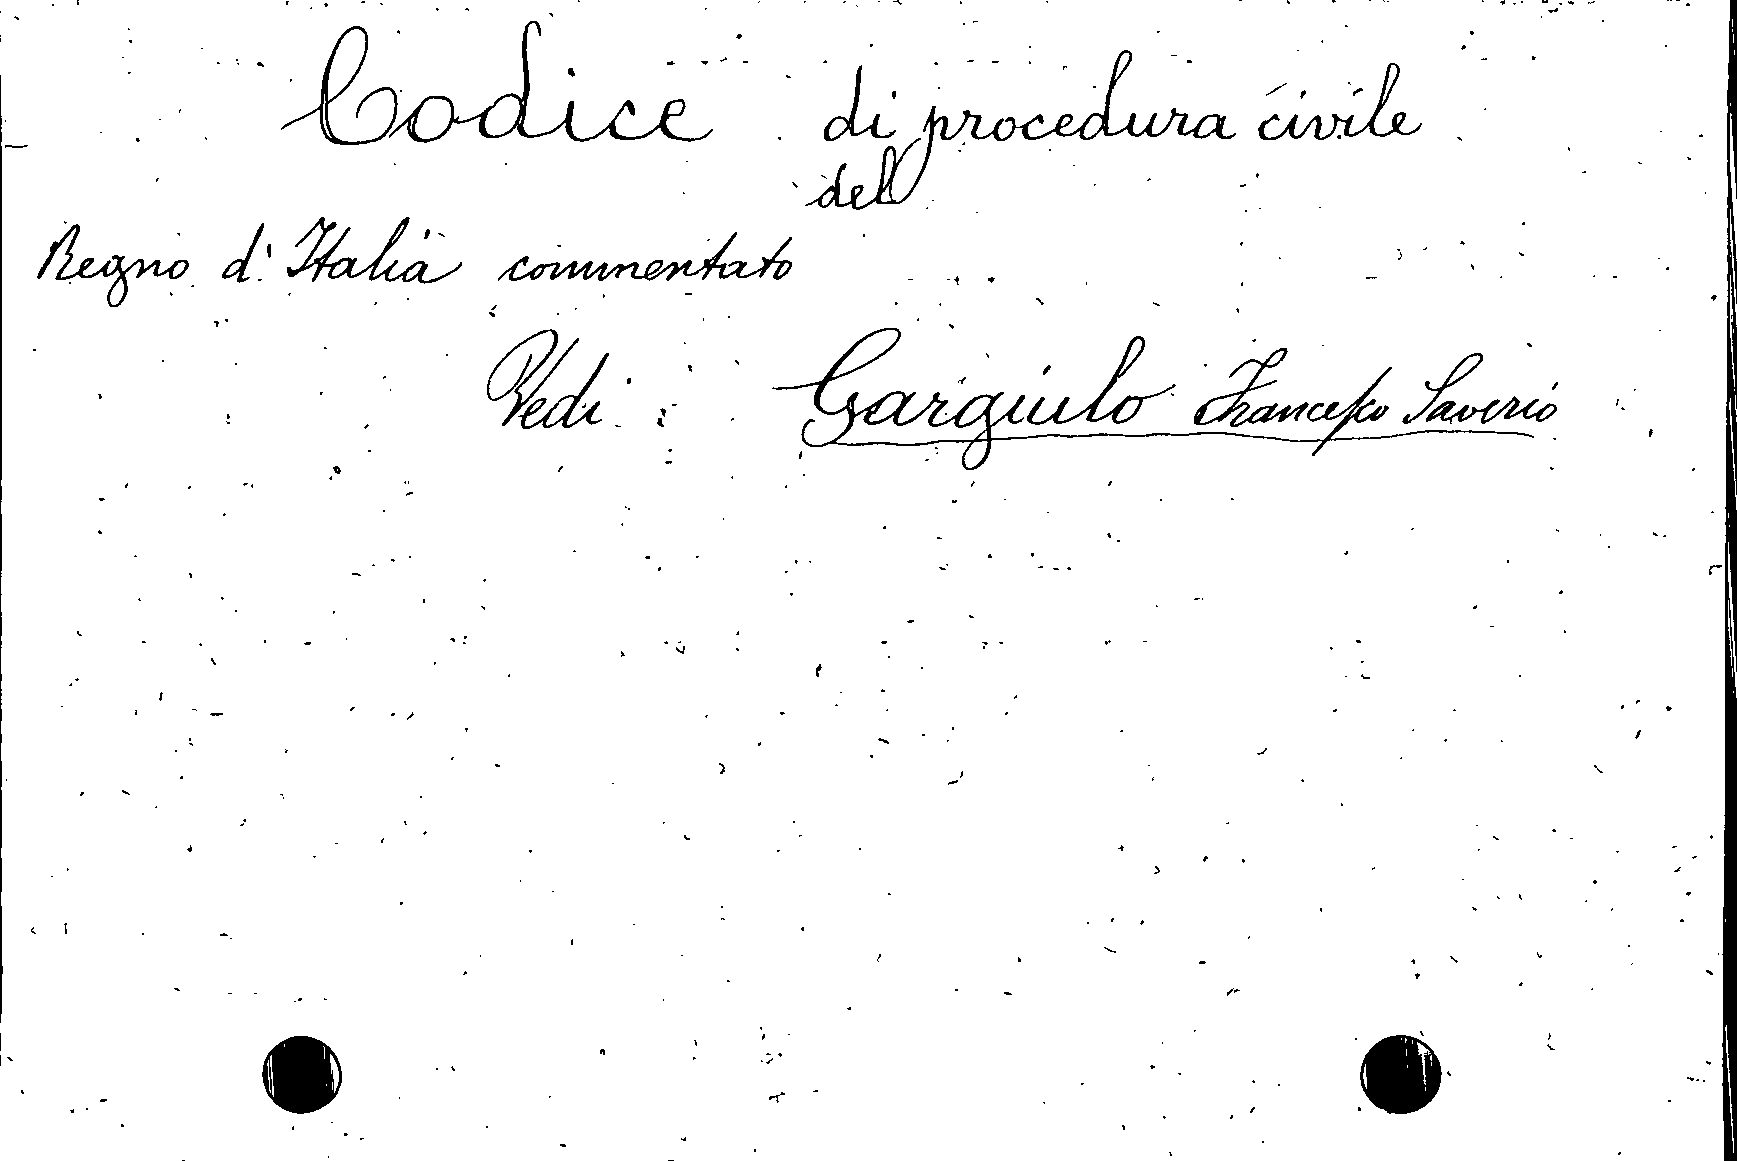 Codice di procedura civile
del
Regno d'Italia commentato
Vedi : Gargiulo Francesco Saverio